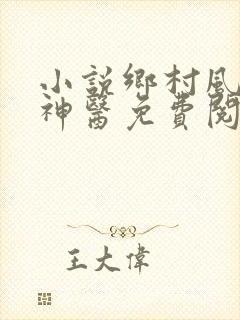 小說鄉村風
神醫免費閱
王大偉